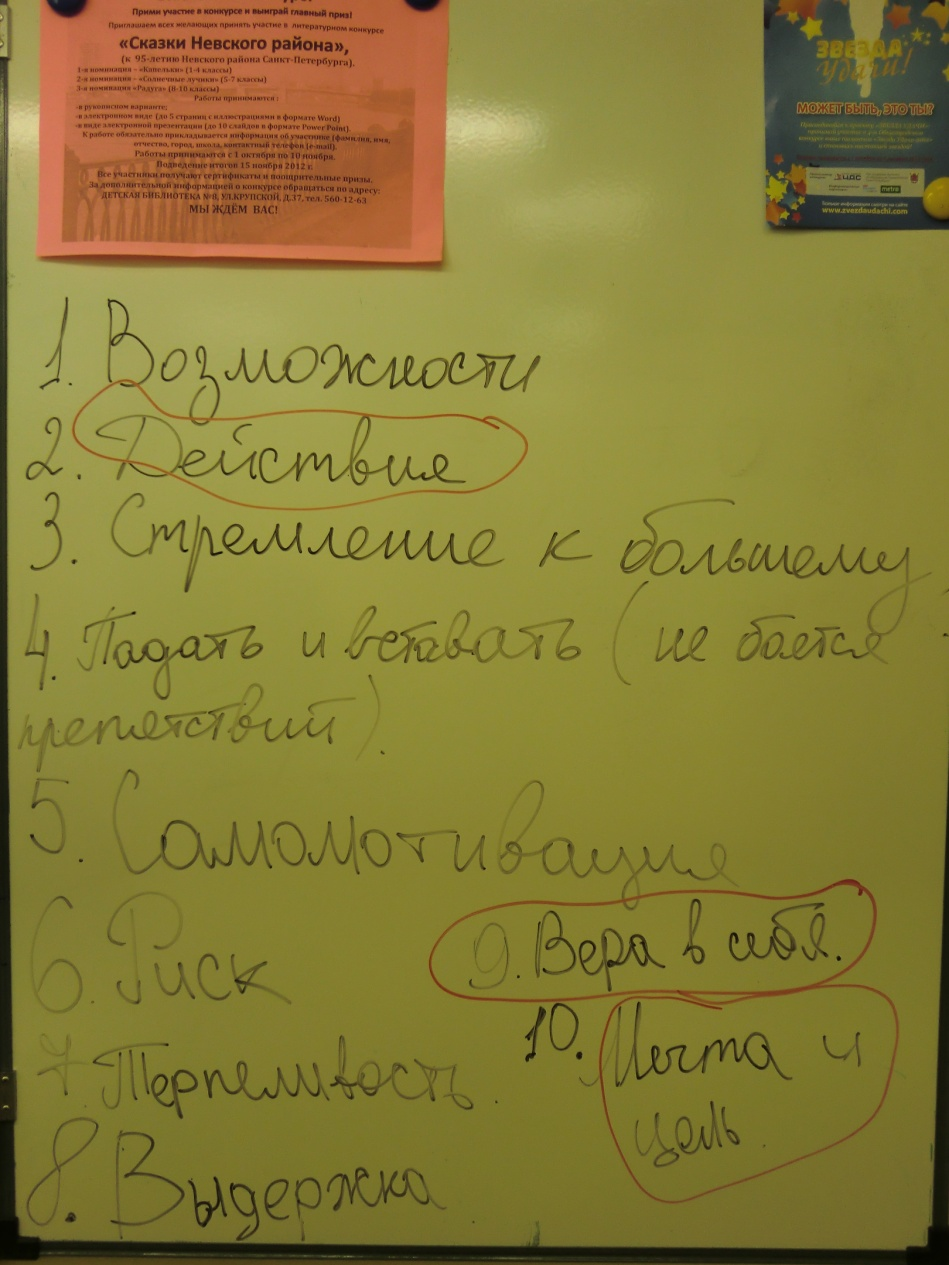 Прими участие в конкурсе и выиграй главный приз!
Приглашаем всех желающих принять участие в литературном конкурсе
«Сказки Невского района»,
(к 95-летию Невского района Санкт-Петербурга).
1-я номинация – «Капельки» (1-4 классы)
2-я номинация – «Солнечные лучики» (5-7 классы)
3-я номинация «Радуга» (8-10 классы)
Работы принимаются :
-в рукописном варианте;
-в электронном виде (до 5 страниц с иллюстрациями в формате Word)
-в виде электронной презентации (до 10 слайдов в формате Power Point).
К работе обязательно прикладывается информация об участнике (фамилия, имя,
отчество, город, школа, контактный телефон (e-mail).
Работы принимаются с 1 октября по 10 ноября.
Подведение итогов 15 ноября 2012 г.
Все участники получают сертификаты и поощрительные призы.
За дополнительной информацией о конкурсе обращаться по адресу:
ДЕТСКАЯ БИБЛИОТЕКА №11, УЛ.КРУПСКОЙ, Д.37, тел. 560-12-63
МЫ ЖДЁМ ВАС!
ЗВЕЗДА
удачи!
МОЖЕТ БЫТЬ, ЭТО ТЫ?
metro
www.zvezdaudachi.com
1. Возможности
2. Действия
3. Стремление к большему
4. Падать и вставать (не боятся
препятствий).
5. Самомотивация
6. Риск
7. Терпеливость.
8. Выдержка
9. Вера в себя.
10. Мечта и
цель.